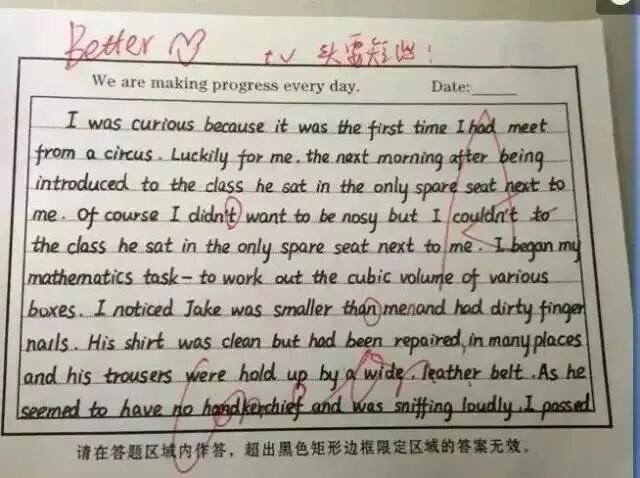 Better
tv 头要短些!
We are making progress every day. Date:
I was curious because it was the first time I had meet
from a circus. Luckily for me. the next morning after being
introduced to the class he sat in the only spare seat next to
me. Of course I didn't want to be nosy but I couldn't to
the class he sat in the only spare seat next to me. I began my
mathematics task - to work out the cubic volume of various
boxes. I noticed Jake was smaller than menand had dirty finger
nails. His shirt was clean but had been repaired, in many places
and his trousers were hold up by a wide, leather belt. As he
seemed to have no handkerchief and was sniffing loudly. I passed
请在答题区域内作答，超出黑色矩形边框限定区域的答案无效。